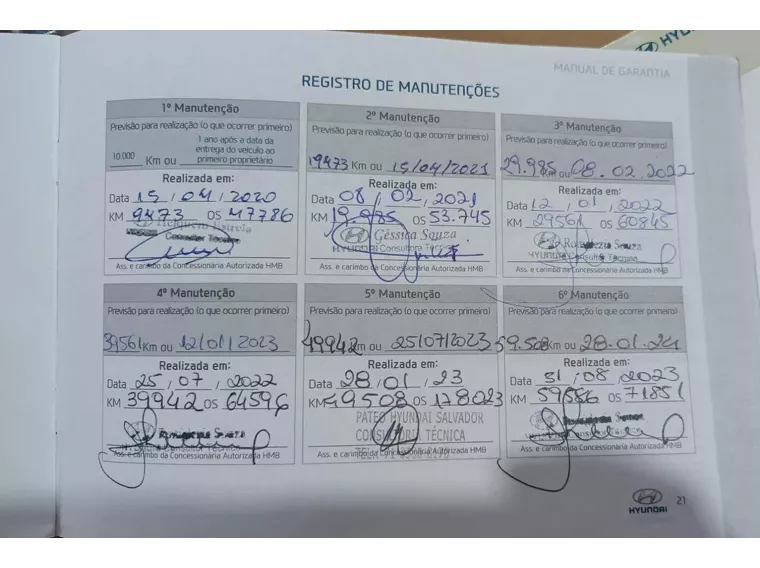 HYU
MANUAL DE GARANTIA
REGISTRO DE MANUTENÇÕES
1º Manutenção
Previsão para realização (o que ocorrer primeiro)
10.000 Km ou 1 ano após a data da entrega do veículo ao primeiro proprietário
Realizada em:
Data 15/04/2020
KM 9473 OS 47786
Consultor Técnico
Ass. e carimbo da Concessionária Autorizada HMB
2º Manutenção
Previsão para realização (o que ocorrer primeiro)
19473 Km ou 15/04/2021
Realizada em:
Data 08/02/2021
KM 19.985 OS 53.745
Géssica Souza
HYUNDAI Consultora Técnica
Ass. e carimbo da Concessionária Autorizada HMB
3º Manutenção
Previsão para realização (o que ocorrer primeiro)
29.985 Km ou 08.02.2022
Realizada em:
Data 12/01/2022
KM 29561 OS 60845
Souza
HYUNDAI Consultora Técnica
Ass. e carimbo da Concessionária Autorizada HMB
4º Manutenção
Previsão para realização (o que ocorrer primeiro)
39561 Km ou 12/01/2023
Realizada em:
Data 25/07/2022
KM 39942 OS 64596
Souza
Ass. e carimbo da Concessionária Autorizada HMB
5º Manutenção
Previsão para realização (o que ocorrer primeiro)
49942 Km ou 25/07/2023
Realizada em:
Data 28/01/23
KM 49508 OS 178023
PATEO HYUNDAI SALVADOR
CONSULTORIA TÉCNICA
Ass. e carimbo da Concessionária Autorizada HMB
6º Manutenção
Previsão para realização (o que ocorrer primeiro)
59.508 Km ou 28.01.24
Realizada em:
Data 31/08/2023
KM 59886 OS 71851
Ass. e carimbo da Concessionária Autorizada HMB
HYUNDAI
21